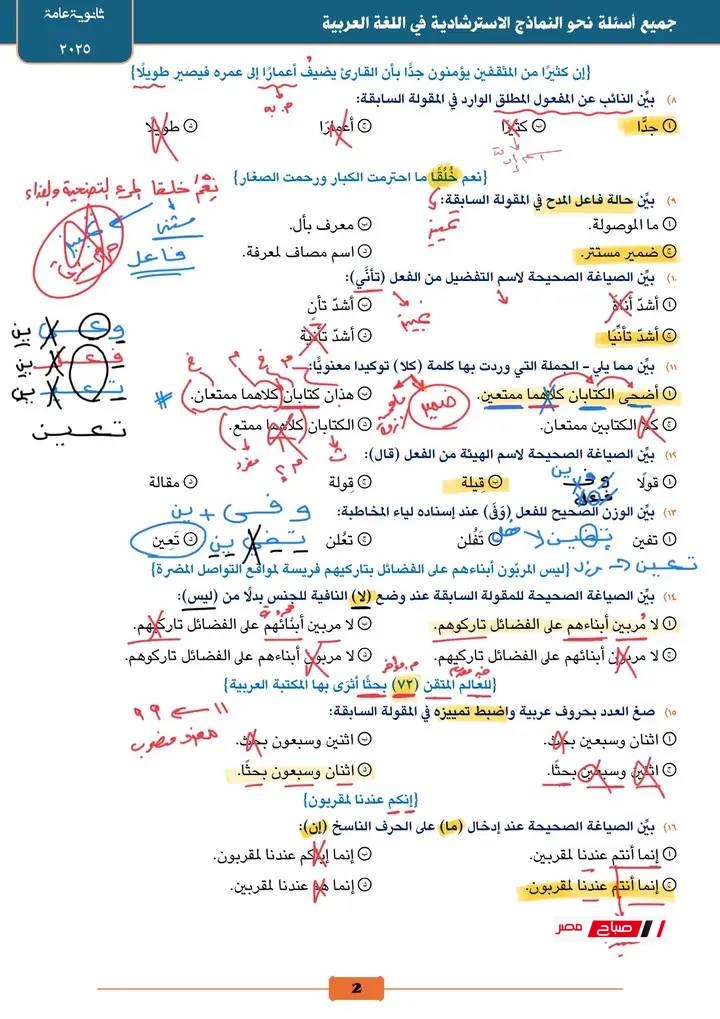 جميع أسئلة نحو النماذج الاسترشادية في اللغة العربية
ثانوية عامة
٢٠٢٥
{إن كثيرًا من المثقفين يؤمنون جدًّا بأن القارئ يضيفُ أعمارًا إلى عمره فيصير طويلًا}
م. به
٨) بيِّن النائب عن المفعول المطلق الوارد في المقولة السابقة:
أ جدًّا
ب كثيرًا
ج أعمارًا
د طويلًا
اسم إن
{نعم خُلُقًا ما احترمت الكبار ورحمت الصغار}
نِعْمَ خلقا المرء التضحية والفداء
تمييز
مستتر
فاعل
٩) بيِّن حالة فاعل المدح في المقولة السابقة:
أ ما الموصولة.
ب معرف بأل.
ج ضمير مستتر.
د اسم مضاف لمعرفة.
تمييز
١٠) بيِّن الصياغة الصحيحة لاسم التفضيل من الفعل (تأنَّى):
أ أشدّ أناة
ب أشدّ تأنٍ
ج أشدّ تأنِّيًا
د أشدّ تأنية
تمييز
١١) بيِّن مما يلي – الجملة التي وردت بها كلمة (كلا) توكيدا معنويًّا:
أ أضحى الكتابان كلاهما ممتعين.
ب هذان كتابان كلاهما ممتعان.
ج كلا الكتابين ممتعان.
د الكتابان كلاهما ممتع.
ضمير
مفرد
وعى ين
تعين
١٢) بيِّن الصياغة الصحيحة لاسم الهيئة من الفعل (قال):
أ قولًا
ب قِيلة
ج قِولة
د مقالة
١٣) بيِّن الوزن الصحيح للفعل (وَفَى) عند إسناده لياء المخاطبة:
وفى + ين
أ تفين
ب تَفْلن
ج تعْلن
د تَعِين
تعين
{ليس المربّون أبناءهم على الفضائل بتاركيهم فريسة لمواقع التواصل المضرة}
١٤) بيِّن الصياغة الصحيحة للمقولة السابقة عند وضع (لا) النافية للجنس بدلًا من (ليس):
أ لا مُربين أبناءهم على الفضائل تاركوهم.
ب لا مربين أبنائهم على الفضائل تاركيهم.
ج لا مربون أبنائهم على الفضائل تاركيهم.
د لا مربون أبناءهم على الفضائل تاركوهم.
خبر مقدم
م. مؤخر
{للعالم المتقن (٧٢) بحثًا أثرَى بها المكتبة العربية}
١٥) صغ العدد بحروف عربية واضبط تمييزه في المقولة السابقة:
١١ ← ٩٩
مفرد منصوب
أ اثنان وسبعين بحث.
ب اثنين وسبعون بحث.
ج اثنين وسبعين بحثًا.
د اثنان وسبعون بحثًا.
{إنكم عندنا لمقربون}
١٦) بيِّن الصياغة الصحيحة عند إدخال (ما) على الحرف الناسخ (إن):
أ إنما أنتم عندنا لمقربين.
ب إنما إياكم عندنا لمقربون.
ج إنما أنتم عندنا لمقربون.
د إنما هم عندنا لمقربين.
صباح مصر
2